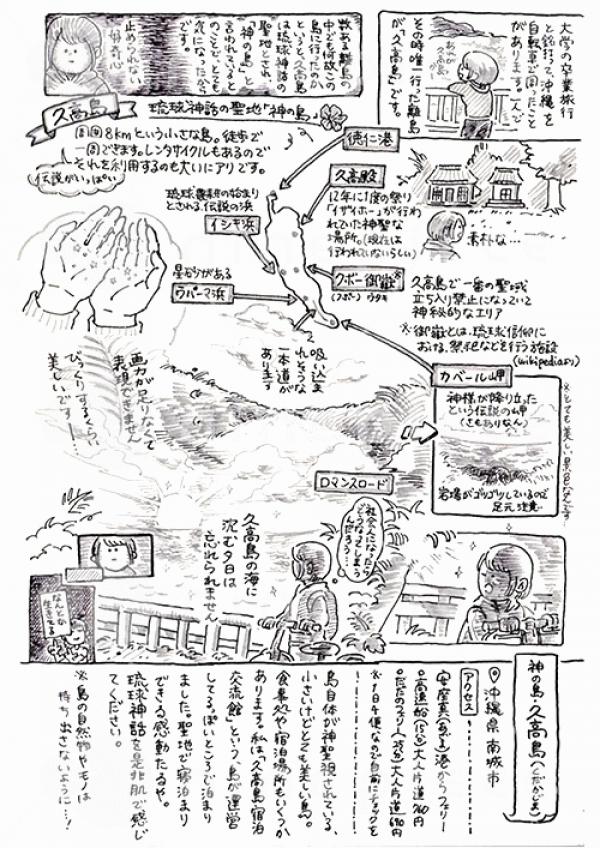 大学の卒業旅行
と銘打って、沖縄を
自転車で回ったこと
があります。一人で
その時唯一行った離島
が「久高島」です。
あれが
久高島か〜
数ある離島の
中でも何故この
島に行ったのか
というと、久高島
は琉球神話の
聖地とされ、
「神の島」と
言われていると
のことで、とても
気になったから
です。
止められない
好奇心
久高島
琉球神話の聖地「神の島」
周囲8kmという小さな島。徒歩で
一周できます。レンタサイクルもあるので
それを利用するのも大いにアリです。
伝説がいっぱい
徳仁港
久高殿
12年に1度の祭り
「イザイホー」が行わ
れていた神聖な
場所。(現在は
行われていないらしい)
素朴な…
琉球農耕の始まり
とされる伝説の浜
イシキ浜
クボー御嶽※
(フボー) ウタキ
久高島で一番の聖域
立ち入り禁止になっていて
神秘的なエリア
※御嶽とは、琉球信仰に
おける、祭祀などを行う施設
(wikipediaより)
星砂がある
ウパーマ浜
吸い込ま
れそうな
一本道が
あります
カベール岬
神様が降り立った
という伝説の岬
(さもありなん)
岩場がゴツゴツしているので
足元注意…
※とても美しい景色なんです
画力が足りなくて
表現できません
びっくりするくらい
美しいです……
ロマンスロード
社会人になったら
どうなってしまう
んだろう…
久高島の海に
沈む夕日は
忘れられません
なんとか
生きてる
神の島・久高島(くだかじま)
沖縄県南城市
アクセス
安座真(あざま)港からフェリー
○高速船(15分)大人片道760円
○ただのフェリー(25分)大人片道670円
※1日6便なので事前にチェックを
島自体が神聖視されている、
小さいけどとても美しい島。
食事処や宿泊場所もいくつか
あります。私は「久高島宿泊
交流館」という、島が運営
してるっぽいところで泊まり
ました。聖地で寝泊まり
できる感動たるや。
琉球神話を是非肌で感じ
てください。
※島の自然物やモノは
持ち出さないように…!